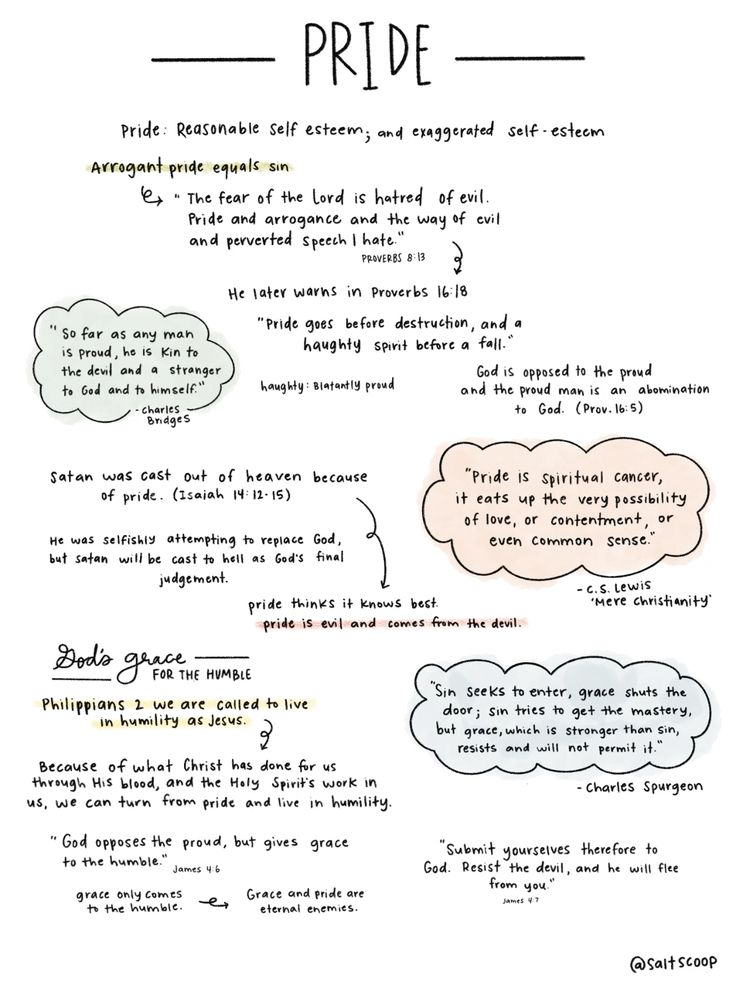 PRIDE
Pride: Reasonable self esteem; and exaggerated self-esteem
Arrogant pride equals sin
"The fear of the Lord is hatred of evil.
Pride and arrogance and the way of evil
and perverted speech I hate."
PROVERBS 8:13
He later warns in Proverbs 16:18
"Pride goes before destruction, and a
haughty spirit before a fall."
"So far as any man
is proud, he is kin to
the devil and a stranger
to God and to himself."
- Charles
Bridges
haughty: Blatantly proud
God is opposed to the proud
and the proud man is an abomination
to God. (Prov. 16:5)
Satan was cast out of heaven because
of pride. (Isaiah 14:12-15)
He was selfishly attempting to replace God,
but Satan will be cast to hell as God's final
judgement.
"Pride is spiritual cancer,
it eats up the very possibility
of love, or contentment, or
even common sense."
- C.S. Lewis
'Mere Christianity'
pride thinks it knows best.
pride is evil and comes from the devil.
God's grace
FOR THE HUMBLE
Philippians 2 we are called to live
in humility as Jesus.
Because of what Christ has done for us
through His blood, and the Holy Spirit's work in
us, we can turn from pride and live in humility.
"Sin seeks to enter, grace shuts the
door; sin tries to get the mastery,
but grace, which is stronger than sin,
resists and will not permit it."
- Charles Spurgeon
"God opposes the proud, but gives grace
to the humble."
James 4:6
grace only comes
to the humble.
Grace and pride are
eternal enemies.
"Submit yourselves therefore to
God. Resist the devil, and he will flee
from you."
James 4:7
@saltscoop